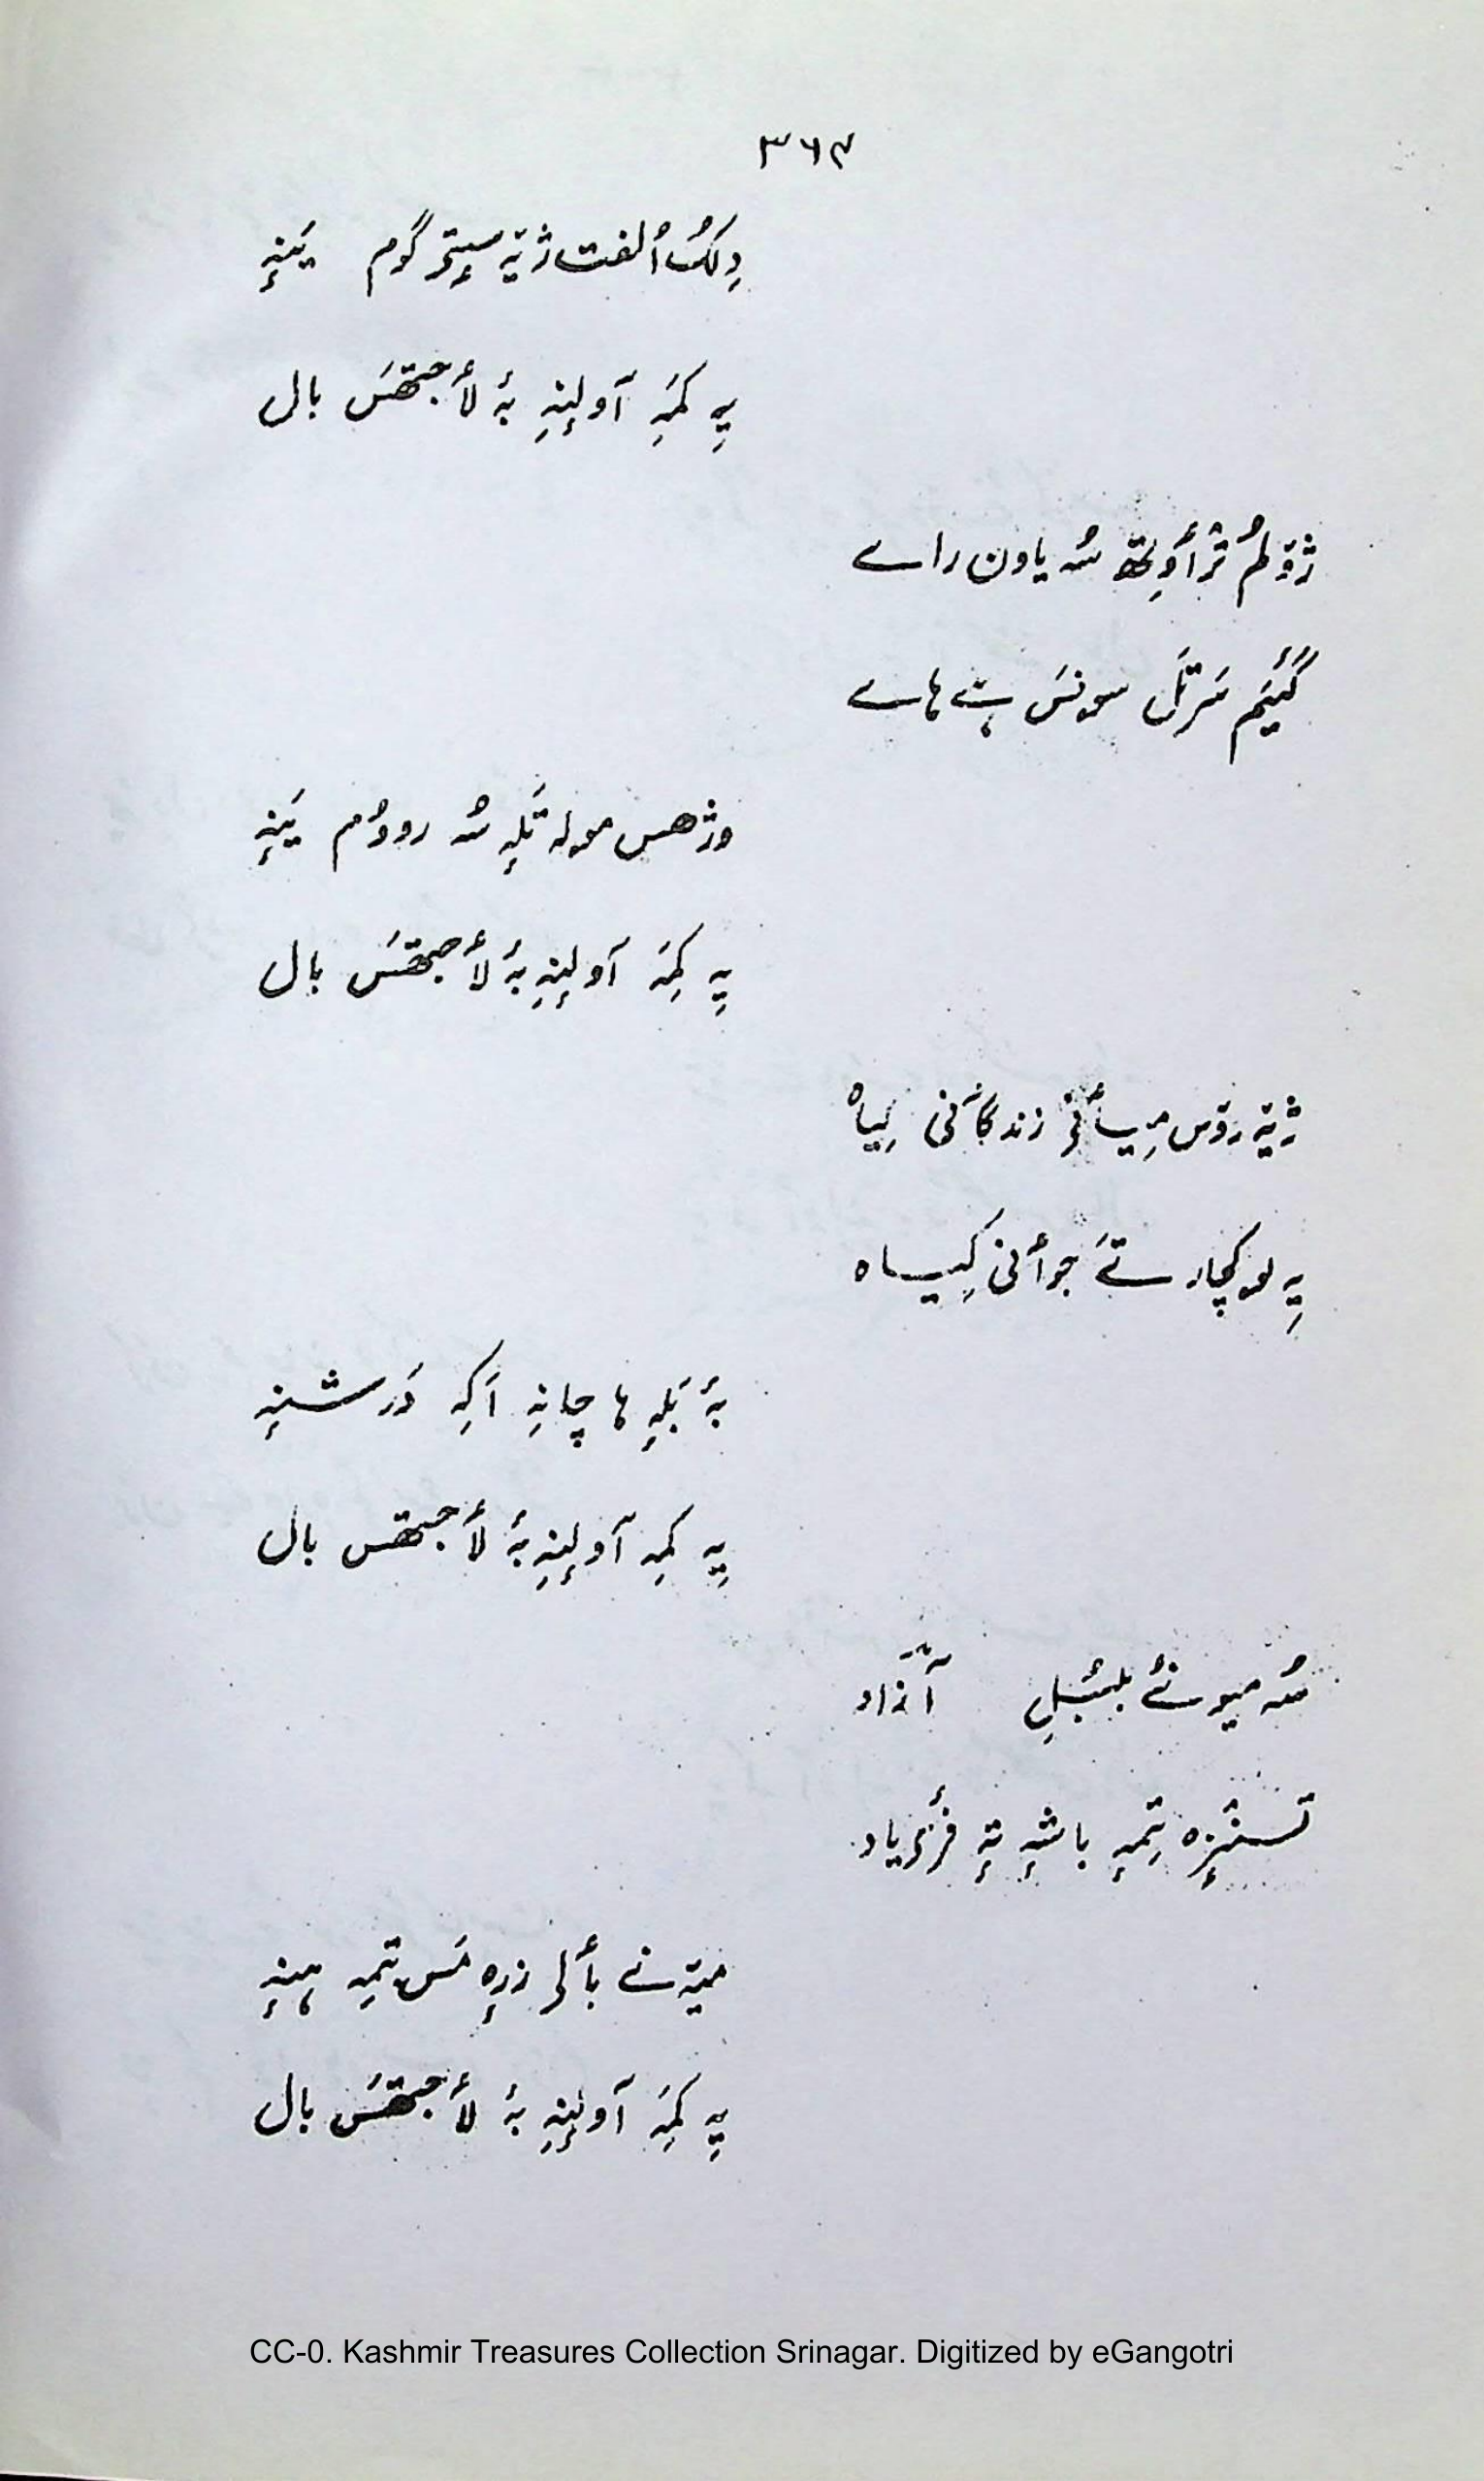 ۳۶۴
دِلُک اُلفت ژٕیہِ سٟیتۍ گوم یَنہٕ
یہِ کَمہِ آولٕنہِ بہٕ لٲجتھَس بال
ژوٚلُم ترٛٲوِتھ سُہ یاون راے
گَیَم سَرتَل سونَس ہِے ہاے
وژھس مولہ تَلہٕ سُہ رووُم یَنہٕ
یہِ کَمہِ آولٕنہِ بہٕ لٲجتھَس بال
ژٕیہِ روٚس مِیٲنۍ زندگٲنی کیاہ
یہِ لوکچار تَے جوٲنی کیاہ
بہٕ بَلہٕ ہا چانہِ اَکہِ دَرشنہٕ
یہِ کمہِ آولٕنہِ بہٕ لٲجتھس بال
سُہ میونُے بلبُلِ آزاد
تسنٛزٕہ تِمہٕ باشہٕ تہٕ فٔریاد
میٚتہِ نے بٲلۍ زرٕہ مَس تِمہٕ ہینہٕ
یہِ کَمہِ آولٕنہِ بہٕ لٲجتھَس بال
CC-0. Kashmir Treasures Collection Srinagar. Digitized by eGangotri